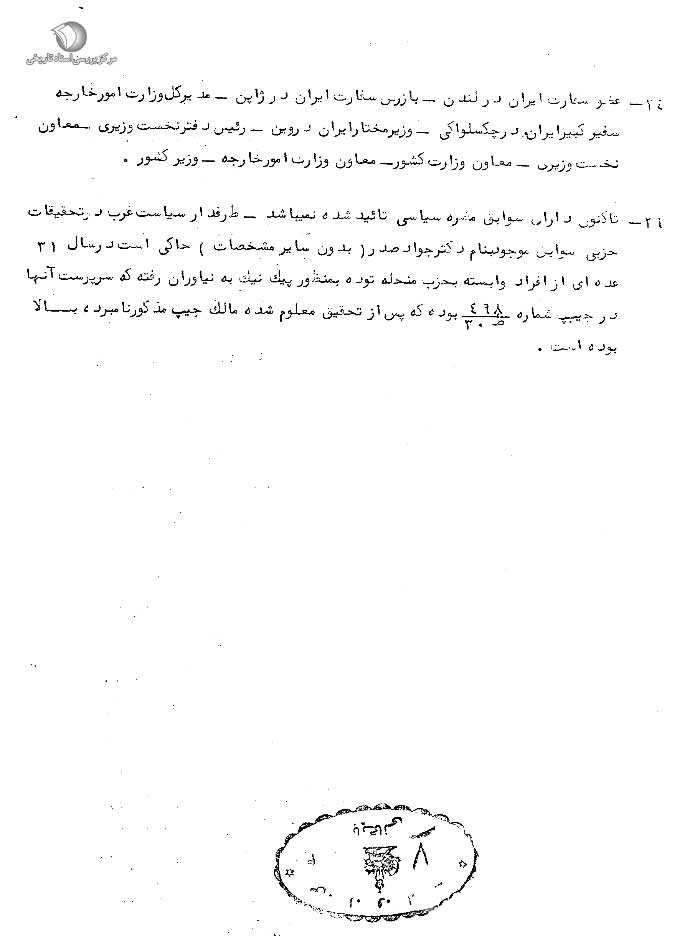 مرکز بررسی اسناد تاریخی
٢٤ــ عضو سفارت ایران در لندن ــ بازرس سفارت ایران در ژاپن ــ مدیرکل وزارت امورخارجه
سفیر کبیرایران در چکسلواکی ــ وزیرمختارایران در وین ــ رئیس دفترنخست وزیری ــ معاون
نخست وزیری ــ معاون وزارت کشورــ معاون وزارت امورخارجه ــ وزیر کشور .
ــ٢٤ تاکنون دارای سوابق مضره سیاسی تائید شده نمیباشد ــ طرفدار سیاست غرب در تحقیقات
حزبی سوابق موجود بنام دکترجواد صدر ( بدون سایر مشخصات ) حاکی است در سال ٣١
عده ای از افراد وابسته بحزب منحله توده بمنظور پیک نیک به نیاوران رفته که سرپرست آنها
در جیپ شماره ٤٦٨ بوده که پس از تحقیق معلوم شده مالک جیپ مذکور نامبرده بــالا
ط ٣٠
بوده است .
بایگانی
٧